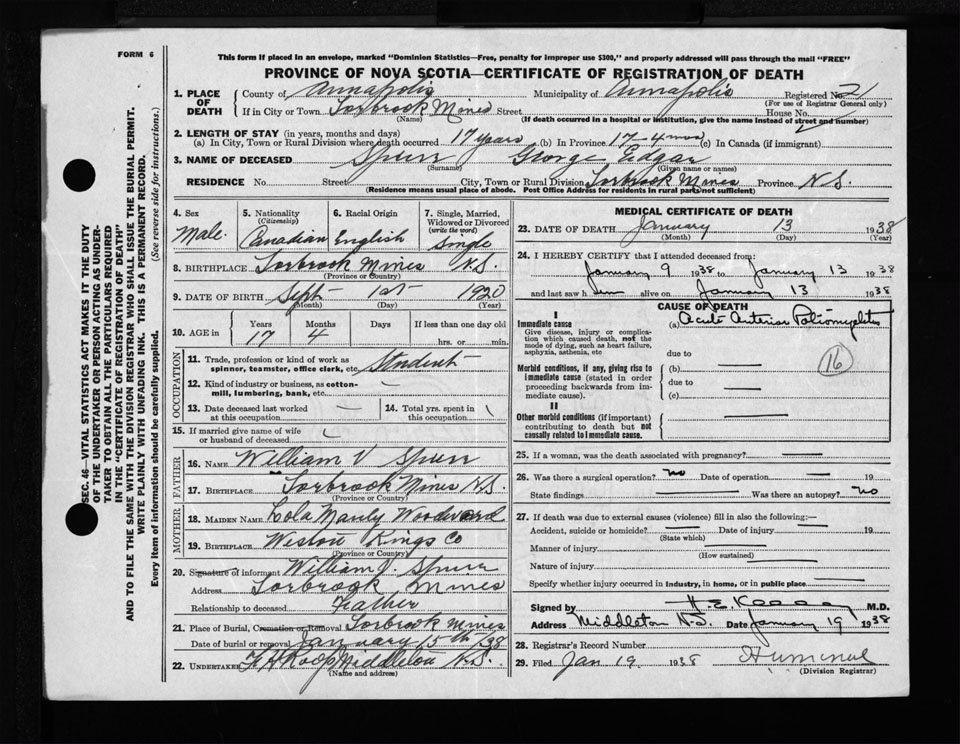 FORM 6
This form if placed in an envelope, marked "Dominion Statistics—Free, penalty for improper use $300," and properly addressed will pass through the mail "FREE"
PROVINCE OF NOVA SCOTIA—CERTIFICATE OF REGISTRATION OF DEATH
SEC. 46—VITAL STATISTICS ACT MAKES IT THE DUTY
OF THE UNDERTAKER OR PERSON ACTING AS UNDER-
TAKER TO OBTAIN ALL THE PARTICULARS REQUIRED
IN THE "CERTIFICATE OF REGISTRATION OF DEATH"
AND TO FILE THE SAME WITH THE DIVISION REGISTRAR WHO SHALL ISSUE THE BURIAL PERMIT.
WRITE PLAINLY WITH UNFADING INK. THIS IS A PERMANENT RECORD.
Every item of information should be carefully supplied. (See reverse side for instructions.)
1. PLACE OF DEATH
County of Annapolis Municipality of Annapolis Registered No. 2
(For use of Registrar General only)
If in City or Town Torbrook Mines Street House No.
(Name) (If death occurred in a hospital or institution, give the name instead of street and number)
2. LENGTH OF STAY (in years, months and days)
(a) In City, Town or Rural Division where death occurred 17 years (b) In Province 17-4 mos (c) In Canada (if immigrant)
3. NAME OF DECEASED Spurr George Edgar
(Surname) (Given name or names)
RESIDENCE No. Street City, Town or Rural Division Torbrook Mines Province N.S.
(Residence means usual place of abode. Post Office Address for residents in rural parts not sufficient)
4. Sex
Male.
5. Nationality
(Citizenship)
Canadian
6. Racial Origin
English
7. Single, Married,
Widowed or Divorced
(write the word)
Single
8. BIRTHPLACE Torbrook Mines N.S.
(Province or Country)
9. DATE OF BIRTH Sept 1st 1920
(Month) (Day) (Year)
10. AGE in
Years Months Days If less than one day old
17 4 hrs. or min.
OCCUPATION
11. Trade, profession or kind of work as
spinner, teamster, office clerk, etc. Student
12. Kind of industry or business, as cotton-
mill, lumbering, bank, etc. —
13. Date deceased last worked
at this occupation —
14. Total yrs. spent in
this occupation
15. If married give name of wife
or husband of deceased
FATHER
16. NAME William V Spurr
17. BIRTHPLACE Torbrook Mines N.S.
(Province or Country)
MOTHER
18. MAIDEN NAME Woodward
19. BIRTHPLACE Weston Kings Co
(Province or Country)
20. Signature of informant William V. Spurr
Address Torbrook Mines
Relationship to deceased Father
21. Place of Burial, Cremation or Removal Torbrook Mines
Date of burial or removal January 15th /38
22. UNDERTAKER Middleton N.S.
(Name and address)
MEDICAL CERTIFICATE OF DEATH
23. DATE OF DEATH January 13 1938
(Month) (Day) (Year)
24. I HEREBY CERTIFY that I attended deceased from:
January 9 1938 to January 13 1938
and last saw him alive on January 13 1938
CAUSE OF DEATH
I
Immediate cause
Give disease, injury or complica-
tion which caused death, not the
mode of dying, such as heart failure,
asphyxia, asthenia, etc
(a) Acute Anterior Poliomyelitis
due to
Morbid conditions, if any, giving rise to
immediate cause (stated in order
proceeding backwards from im-
mediate cause).
(b) —
due to
(c) —
16
II
Other morbid conditions (if important)
contributing to death but not
causally related to immediate cause.
25. If a woman, was the death associated with pregnancy? —
26. Was there a surgical operation? no Date of operation — 19
State findings — Was there an autopsy? no
27. If death was due to external causes (violence) fill in also the following:—
Accident, suicide or homicide? — Date of injury — 19
(State which)
Manner of injury —
(How sustained)
Nature of injury —
Specify whether injury occurred in industry, in home, or in public place —
Signed by M.D.
Address Middleton N.S. Date January 19 1938
28. Registrar's Record Number
29. Filed Jan 19 1938
(Division Registrar)